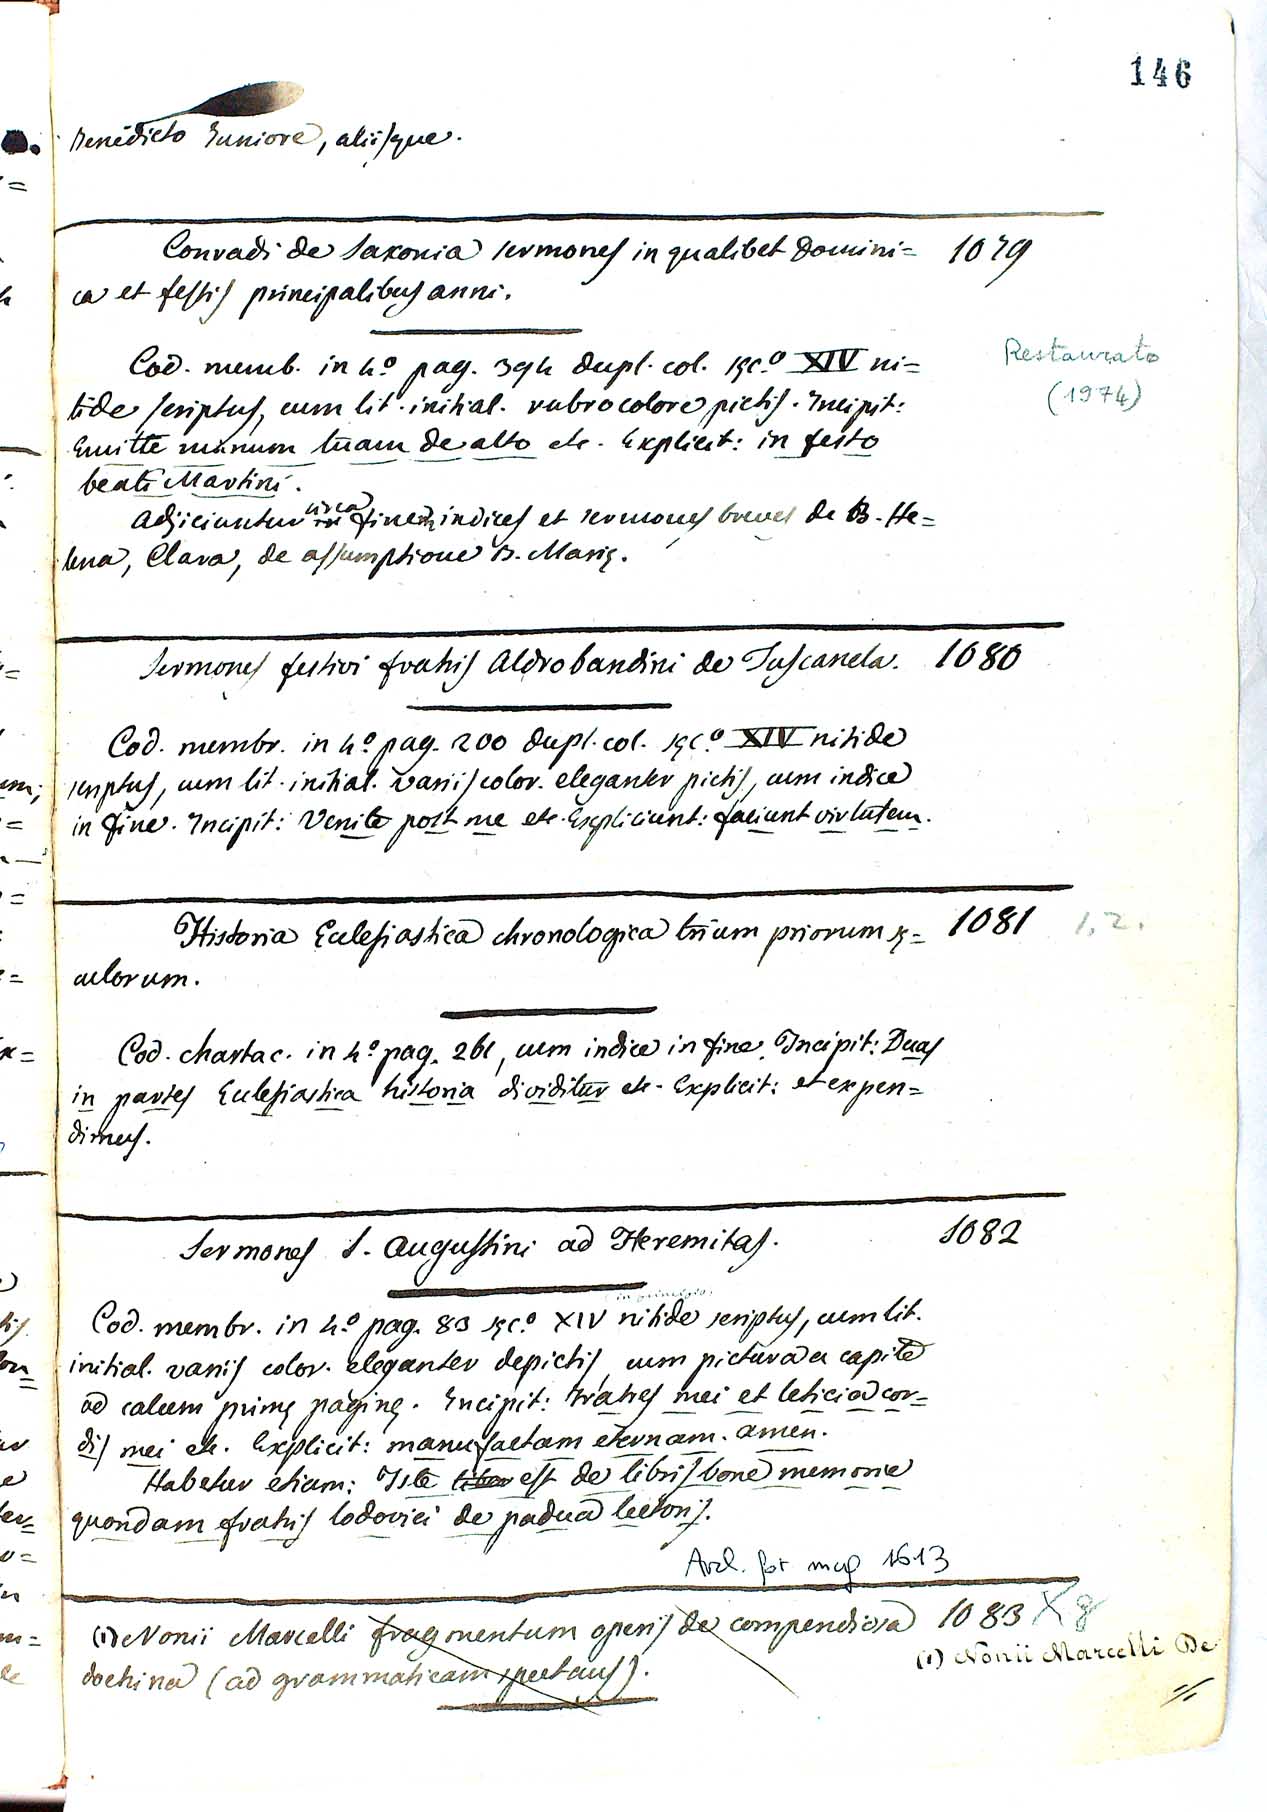 146
Benedicto Iuniore, aliisque.
Conradi de Saxonia sermones in qualibet Domini= 1079
ca et festis principalibus anni.
Cod. memb. in 4.º pag. 394 dupl. col. sęc.º XIV ni= Restaurato
tide scriptus, cum lit. initial. rubro colore pictis. Incipit: (1974)
Emitte manum tuam de alto etc. Explicit: in festo
beati Martini.
Adjiciuntur circa finem indices et sermones breves de B. He=
lena, Clara, de assumptione B. Marię.
Sermones festivi fratris Aldrobandini de Tuscanela. 1080
Cod. membr. in 4.º pag. 200 dupl. col. sęc.º XIV nitide
scriptus, cum lit. initial. variis color. eleganter pictis, cum indice
in fine. Incipit: Venite post me etc. Expliciunt: faciunt virtutem.
Historia Eclesiastica chronologica trium priorum sę= 1081 1,2.
culorum.
Cod. chartac. in 4.º pag. 261, cum indice in fine. Incipit: Duas
in partes Eclesiastica historia dividitur etc. Explicit: et expen=
dimus.
Sermones S. Augustini ad Heremitas. 1082
(in principio)
Cod. membr. in 4.º pag. 83 sęc.º XIV nitide scriptus, cum lit.
initial. variis color. eleganter depictis, cum pictura a capite
ad calcem primę paginę. Incipit: Fratres mei et leticia cor=
dis mei etc. Explicit: manufactam eternam. amen.
Habetur etiam: Iste liber est de libris bone memorie
quondam fratris lodovici de padua lectoris.
1613
(1) Nonii Marcelli fragmentum operis de compendiosa 1083 X 8
doctrina (ad grammaticam spectans). (1) Nonii Marcelli De